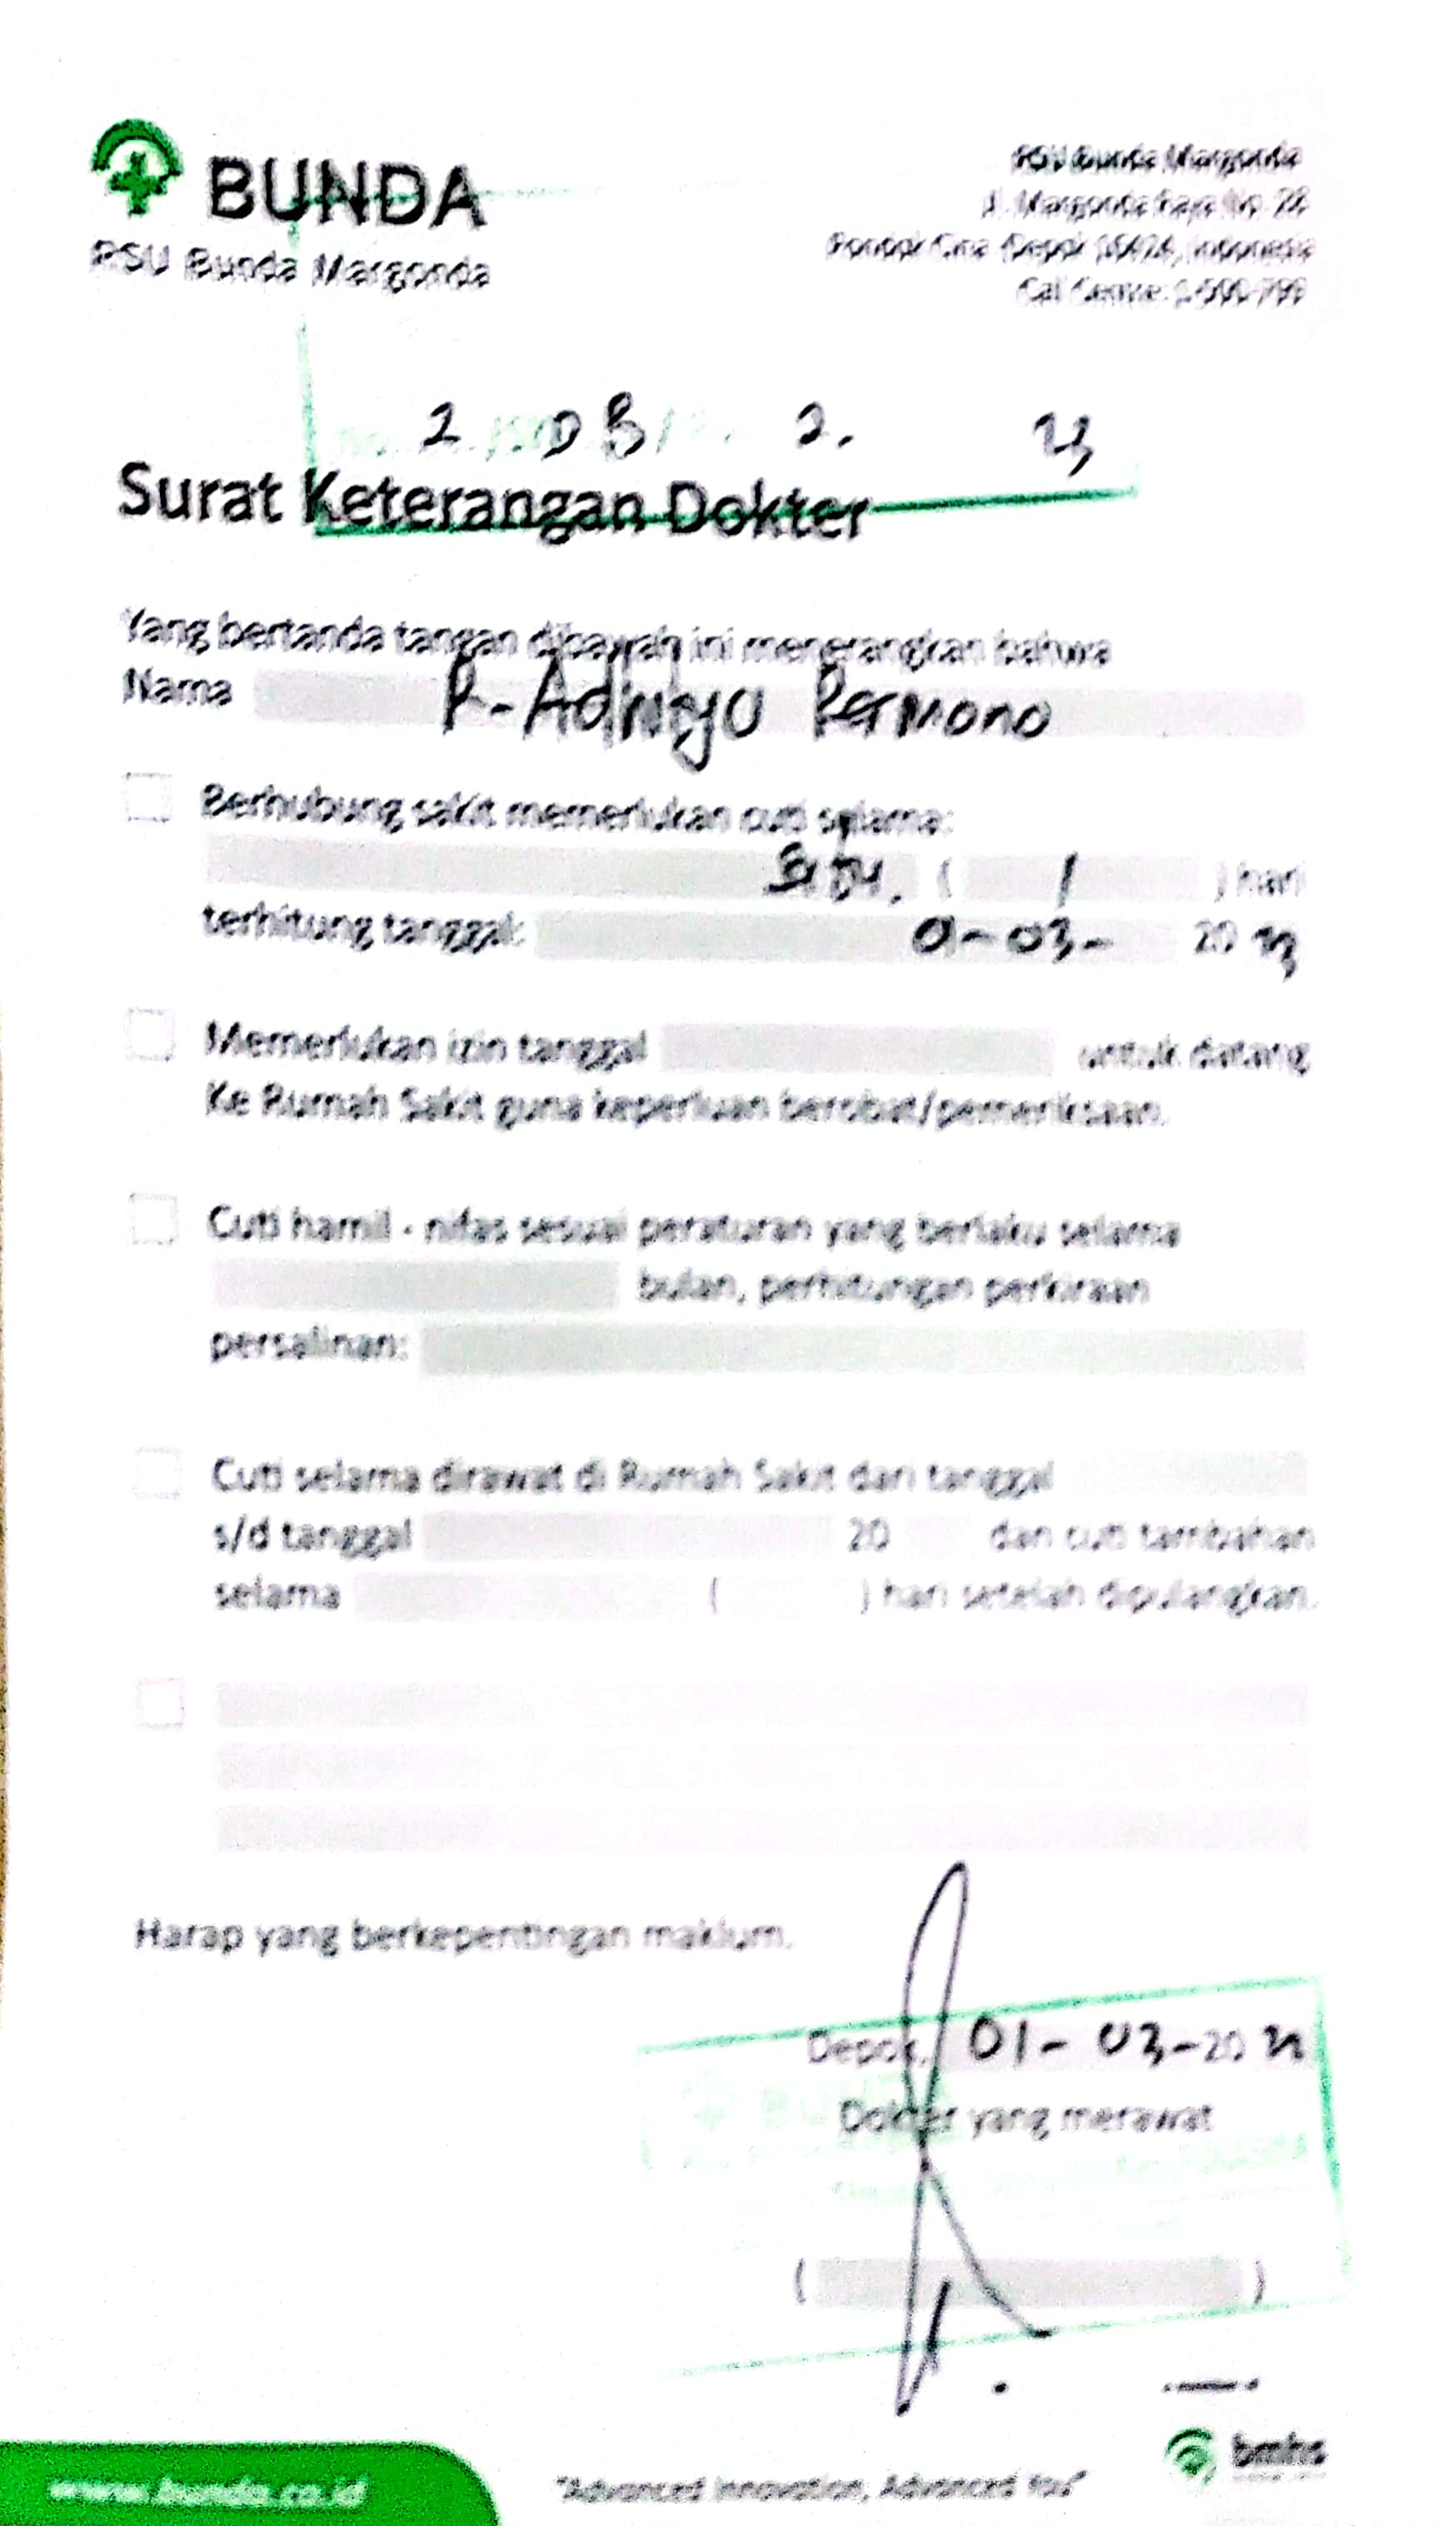 BUNDA
RSU Bunda Margonda
RSU Bunda Margonda
Jl. Margonda Raya No. 28
Pondok Cina Depok 16424, Indonesia
Call Center: 1-500-799
2 03 2. 23
Surat Keterangan Dokter
Yang bertanda tangan dibawah ini menerangkan bahwa
Nama Permono
Berhubung sakit memerlukan cuti selama:
( 1 ) hari
terhitung tanggal: 01-03- 20 23
Memerlukan izin tanggal untuk datang
Ke Rumah Sakit guna keperluan berobat/pemeriksaan.
Cuti hamil - nifas sesuai peraturan yang berlaku selama
bulan, perhitungan perkiraan
persalinan:
Cuti selama dirawat di Rumah Sakit dari tanggal
s/d tanggal 20 dan cuti tambahan
selama ( ) hari setelah dipulangkan.
Harap yang berkepentingan maklum.
Depok, 01-03-20
BUNDA
Dokter yang merawat
( )
www.bunda.co.id
"Advanced Innovation, Advanced You"
bmhs